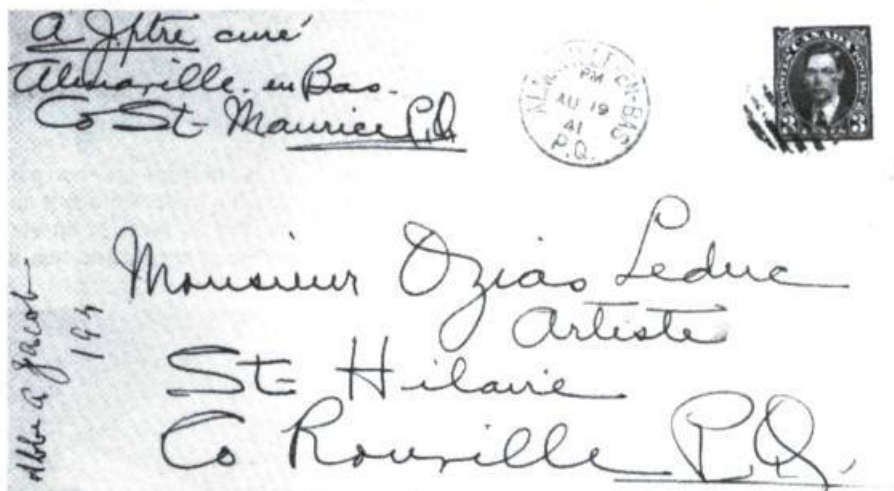 A J. ptre curé
Almaville-en Bas-
Co St-Maurice P.Q.
ALMAVILLE-EN-BAS
PM
AU 19
41
P.Q.
CANADA
3 3
Monsieur Ozias Leduc
Artiste
St-Hilaire
Co Rouville P.Q.
Abbé A Jacob